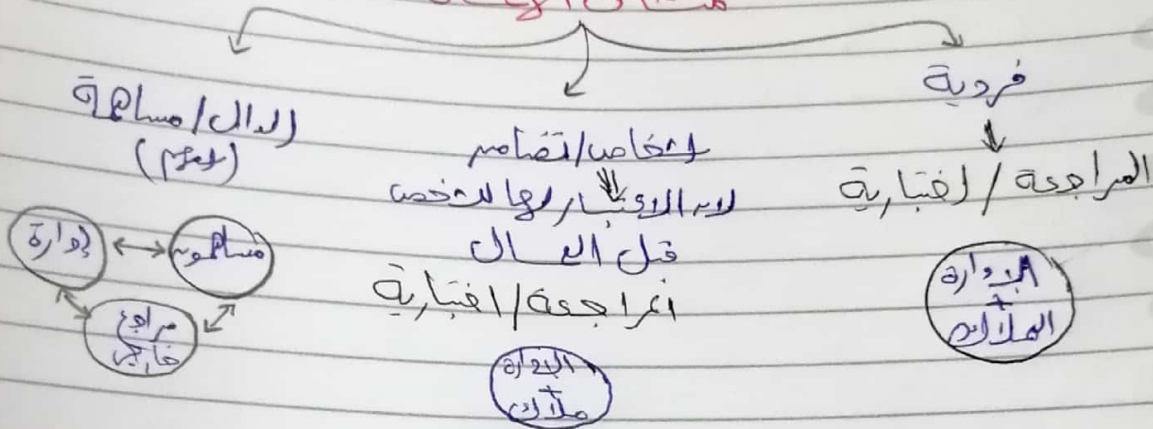 فردية
المراجعة / اختيارية
الإدارة
+
الملاك
أشخاص/تضامن
لابد الاعتبار لها للشخص
قبل المال
المراجعة/اختيارية
الإدارة
+
ملاك
المال/مساهمة
(أسهم)
مساهمون
إدارة
مراجع
خارجي